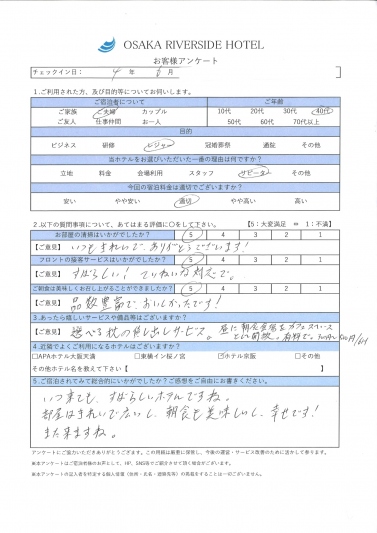 OSAKA RIVERSIDE HOTEL
お客様アンケート
チェックイン日： 4 年 6 月
1.ご利用された方、及び目的等についてお伺いします。
ご宿泊者について ご年齢
ご家族 ご夫婦 カップル 10代 20代 30代 40代
ご友人 仕事仲間 お一人 50代 60代 70代以上
目的
ビジネス 研修 レジャー 冠婚葬祭 通院 その他
当ホテルをお選びいただいた一番の理由は何ですか？
立地 料金 会場利用 スタッフ リピーター その他
今回の宿泊料金は適切でございますか？
安い やや安い 適切 やや高い 高い
2.以下の質問事項について、あてはまる評価に○をして下さい。 【5：大変満足 ⇔ 1：不満】
お部屋の清掃はいかがでしたか？ 5 4 3 2 1
【ご意見】 いつもきれいで、ありがとうございます！
フロントの接客サービスはいかがでしたか？ 5 4 3 2 1
【ご意見】 すばらしい！ ていねいな対応で。
ご朝食は美味しくお召し上がることができましたか？ 5 4 3 2 1
【ご意見】 品数豊富で、おいしかったです！
3.あったら嬉しいサービスや備品等はございますか？
【ご意見】 選べる枕の貸し出しサービス。 昼に朝食会場をカフェスペースとして開放。有料で。
4.近隣でよくご利用になるホテルはございますか？
□APAホテル大阪天満 □東横イン桜ノ宮 ☑ホテル京阪 □その他
その他ホテル名を教えて下さい【 】
5.ご宿泊されてみて総合的にいかがでしたか？ご感想をご自由にお書きください。
いつ来ても、すばらしいホテルですね。
お部屋はきれいで広いし、朝食も美味しいし、幸せです！
また来ますね。
アンケートにご協力いただきありがとうございます。この用紙は厳重に保管し、今後の運営・サービス改善のために活かして参ります。
※本アンケートはご宿泊者様のお声として、HP、SNS等でご紹介させて頂く場合がございます。
※本アンケートの記入者を特定する個人情報（住所・氏名・連絡先等）の掲載をすることは一切ございません。